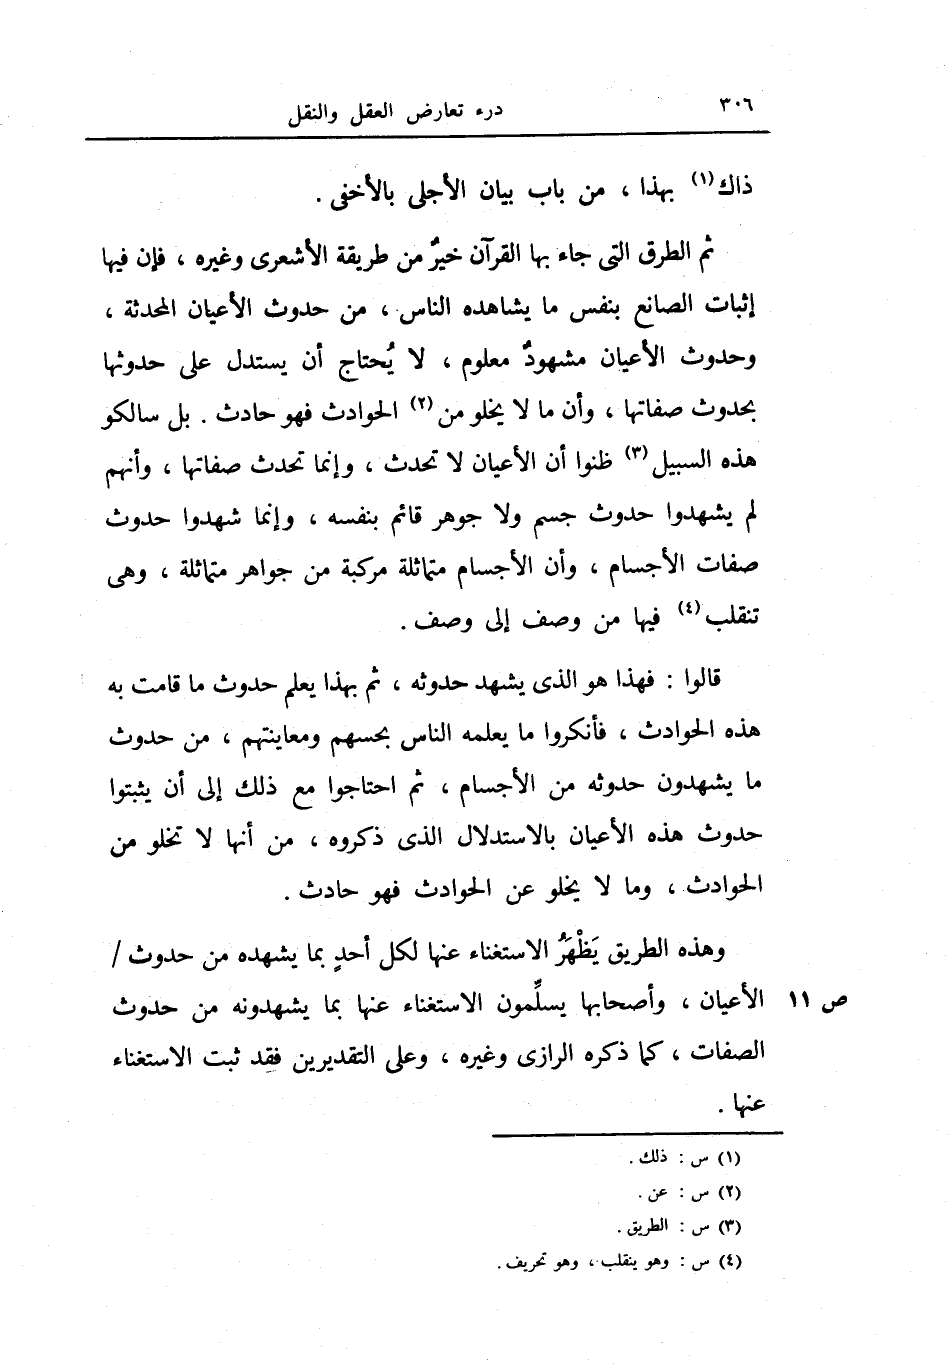 ٣٠٦ درء تعارض العقل والنقل
ذاك(١) بهذا ، من باب بيان الأجلى بالأخفى .
ثم الطرق التى جاء بها القرآن خيرٌ من طريقة الأشعرى وغيره ، فإن فيها
إثبات الصانع بنفس ما يشاهده الناس ، من حدوث الأعيان المحدثة ،
وحدوث الأعيان مشهودٌ معلوم ، لا يُحتاج أن يستدل على حدوثها
بحدوث صفاتها ، وأن ما لا يخلو من(٢) الحوادث فهو حادث . بل سالكو
هذه السبيل(٣) ظنوا أن الأعيان لا تحدث ، وإنما تحدث صفاتها ، وأنهم
لم يشهدوا حدوث جسم ولا جوهر قائم بنفسه ، وإنما شهدوا حدوث
صفات الأجسام ، وأن الأجسام متماثلة مركبة من جواهر متماثلة ، وهى
تنقلب(٤) فيها من وصف إلى وصف .
قالوا : فهذا هو الذى يشهد حدوثه ، ثم بهذا يعلم حدوث ما قامت به
هذه الحوادث ، فأنكروا ما يعلمه الناس بحسهم ومعاينتهم ، من حدوث
ما يشهدون حدوثه من الأجسام ، ثم احتاجوا مع ذلك إلى أن يثبتوا
حدوث هذه الأعيان بالاستدلال الذى ذكروه ، من أنها لا تخلو من
الحوادث ، وما لا يخلو عن الحوادث فهو حادث .
وهذه الطريق يَظْهَرُ الاستغناء عنها لكل أحدٍ بما يشهده من حدوث /
ص ١١ الأعيان ، وأصحابها يسلِّمون الاستغناء عنها بما يشهدونه من حدوث
الصفات ، كما ذكره الرازى وغيره ، وعلى التقديرين فقد ثبت الاستغناء
عنها .
(١) س : ذلك .
(٢) س : عن .
(٣) س : الطريق .
(٤) س : وهو ينقلب ، وهو تحريف .